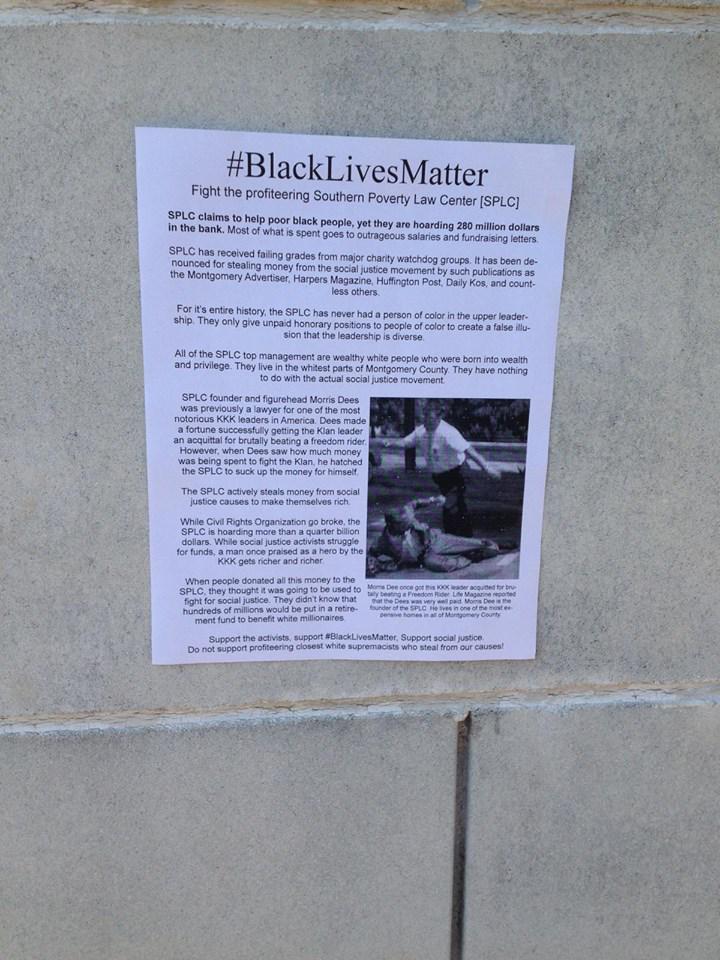 #BlackLivesMatter
Fight the profiteering Southern Poverty Law Center [SPLC]
SPLC claims to help poor black people, yet they are hoarding 280 million dollars
in the bank. Most of what is spent goes to outrageous salaries and fundraising letters.
SPLC has received failing grades from major charity watchdog groups. It has been de-
nounced for stealing money from the social justice movement by such publications as
the Montgomery Advertiser, Harpers Magazine, Huffington Post, Daily Kos, and count-
less others.
For it's entire history, the SPLC has never had a person of color in the upper leader-
ship. They only give unpaid honorary positions to people of color to create a false illu-
sion that the leadership is diverse.
All of the SPLC top management are wealthy white people who were born into wealth
and privilege. They live in the whitest parts of Montgomery County. They have nothing
to do with the actual social justice movement.
SPLC founder and figurehead Morris Dees
was previously a lawyer for one of the most
notorious KKK leaders in America. Dees made
a fortune successfully getting the Klan leader
an acquittal for brutally beating a freedom rider.
However, when Dees saw how much money
was being spent to fight the Klan, he hatched
the SPLC to suck up the money for himself.
The SPLC actively steals money from social
justice causes to make themselves rich.
While Civil Rights Organization go broke, the
SPLC is hoarding more than a quarter billion
dollars. While social justice activists struggle
for funds, a man once praised as a hero by the
KKK gets richer and richer.
When people donated all this money to the
SPLC, they thought it was going to be used to
fight for social justice. They didn't know that
hundreds of millions would be put in a retire-
ment fund to benefit white millionaires.
Morris Dee once got this KKK leader acquitted for bru-
tally beating a Freedom Rider. Life Magazine reported
that the Dees was very well paid. Morris Dee is the
founder of the SPLC. He lives in one of the most ex-
pensive homes in all of Montgomery County.
Support the activists, support #BlackLivesMatter, Support social justice.
Do not support profiteering closest white supremacists who steal from our causes!